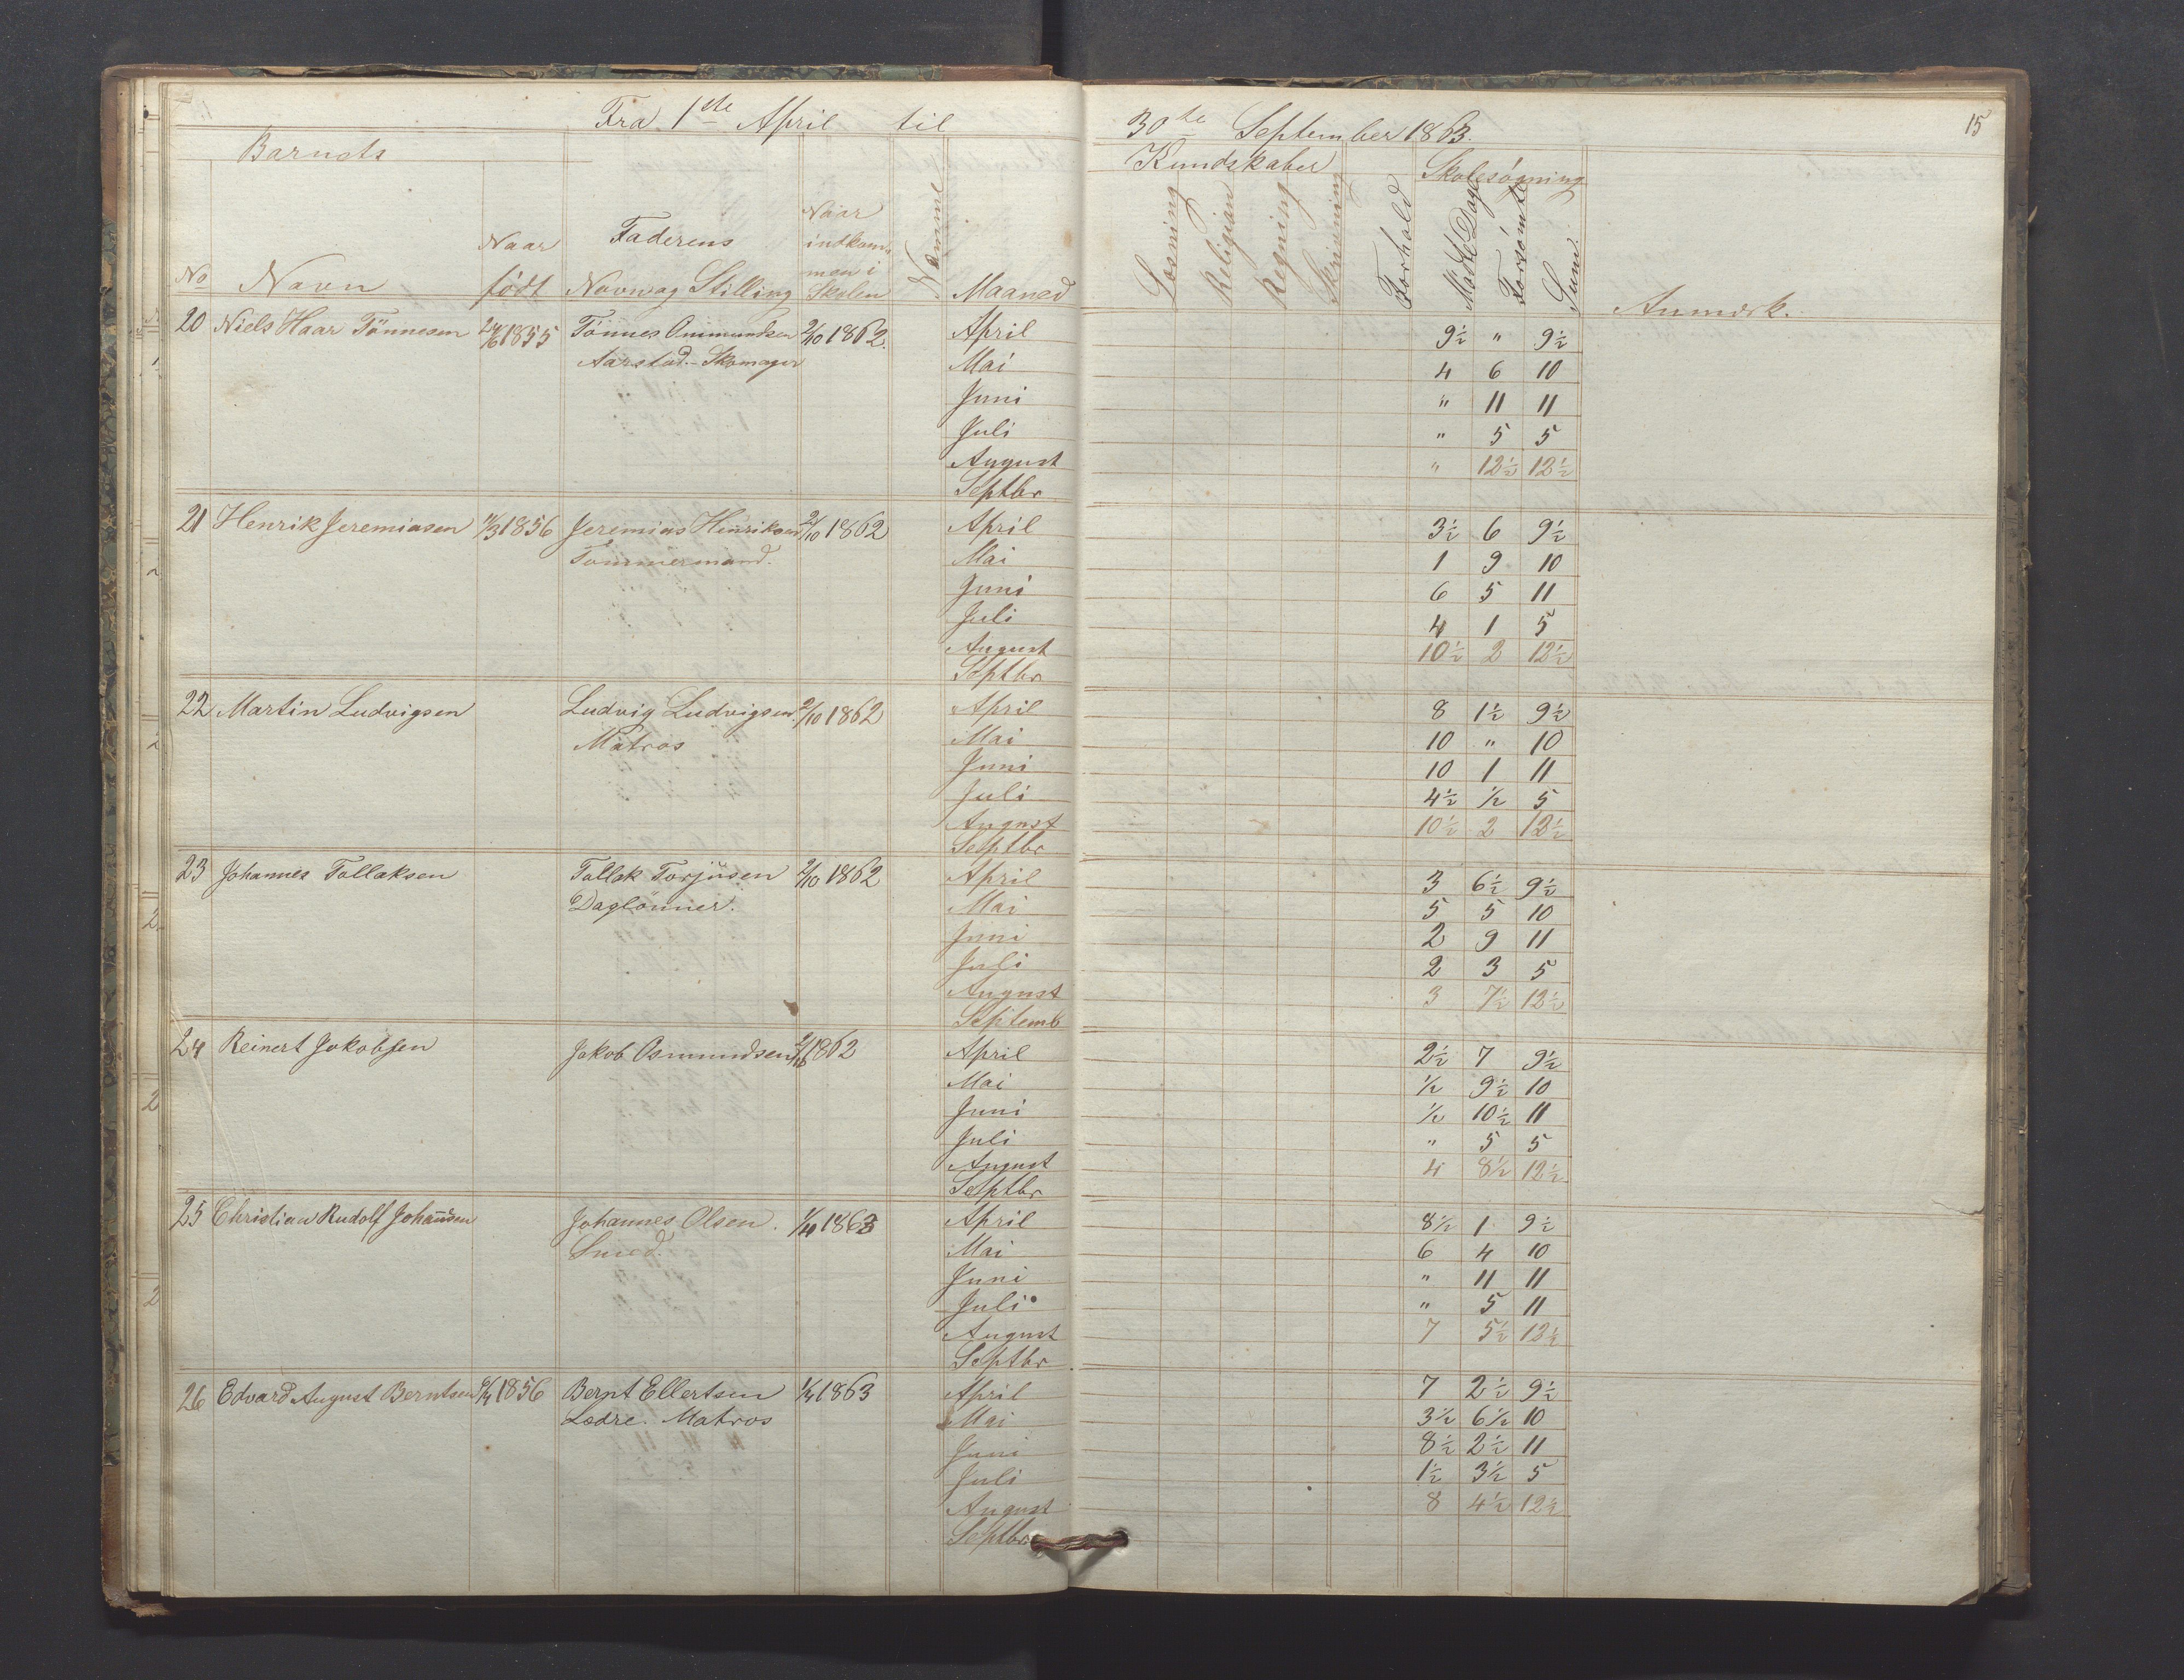 Fra 1ste April til 30te September 1863. 15
Barnets Kundskaber Skolesøgning
No Navn Naar født Faderens Navn og Stilling Naar indkommen i Skolen Maaned Læsning Religion Regning Skrivning Forhold Mødte Dage Forsømte Sum Anmærk.
20 Niels Haar Tönnesen 1855 Tönnes Ommundsen 2/10 1862. April 9½ " 9½
Aarstad. - Skomager Mai 4 6 10
Juni " 11 11
Juli " 5 5
August " 12½ 12½
Septbr
21 Henrik Jeremiasen 1856 Jeremias Henriksen 2/10 1862 April 3½ 6 9½
Tommermand. Mai 1 9 10
Juni 6 5 11
Juli 4 1 5
August 10½ 2 12½
Septbr
22 Martin Ludvigsen Ludvig Ludvigsen 2/10 1862 April 8 1½ 9½
Matros Mai 10 " 10
Juni 10 1 11
Juli 4½ ½ 5
August 10½ 2 12½
Septbr
23 Johannes Tollaksen Tollak Torjusen 2/10 1862 April 3 6½ 9½
Daglönner. Mai 5 5 10
Juni 2 9 11
Juli 2 3 5
August 3 7½ 12½
Septemb
24 Reinert Jakobsen Jakob Osmundsen 2/10 1862 April 2½ 7 9½
Mai ½ 9½ 10
Juni ½ 10½ 11
Juli " 5 5
August 4 8½ 12½
Septbr
25 Christian Rudolf Johannsen Johannes Olsen. 1/4 1863 April 8½ 1 9½
Smed. Mai 6 4 10
Juni " 11 11
Juli " 5 11
August 7 5½ 12½
Septbr
26 Edvard August Berntsen 1856 Bernt Ellertsen 1/4 1863 April 7 2½ 9½
Lædre. Matros Mai 3½ 6½ 10
Juni 8½ 2½ 11
Juli 1½ 3½ 5
August 8 4½ 12½
Septbr